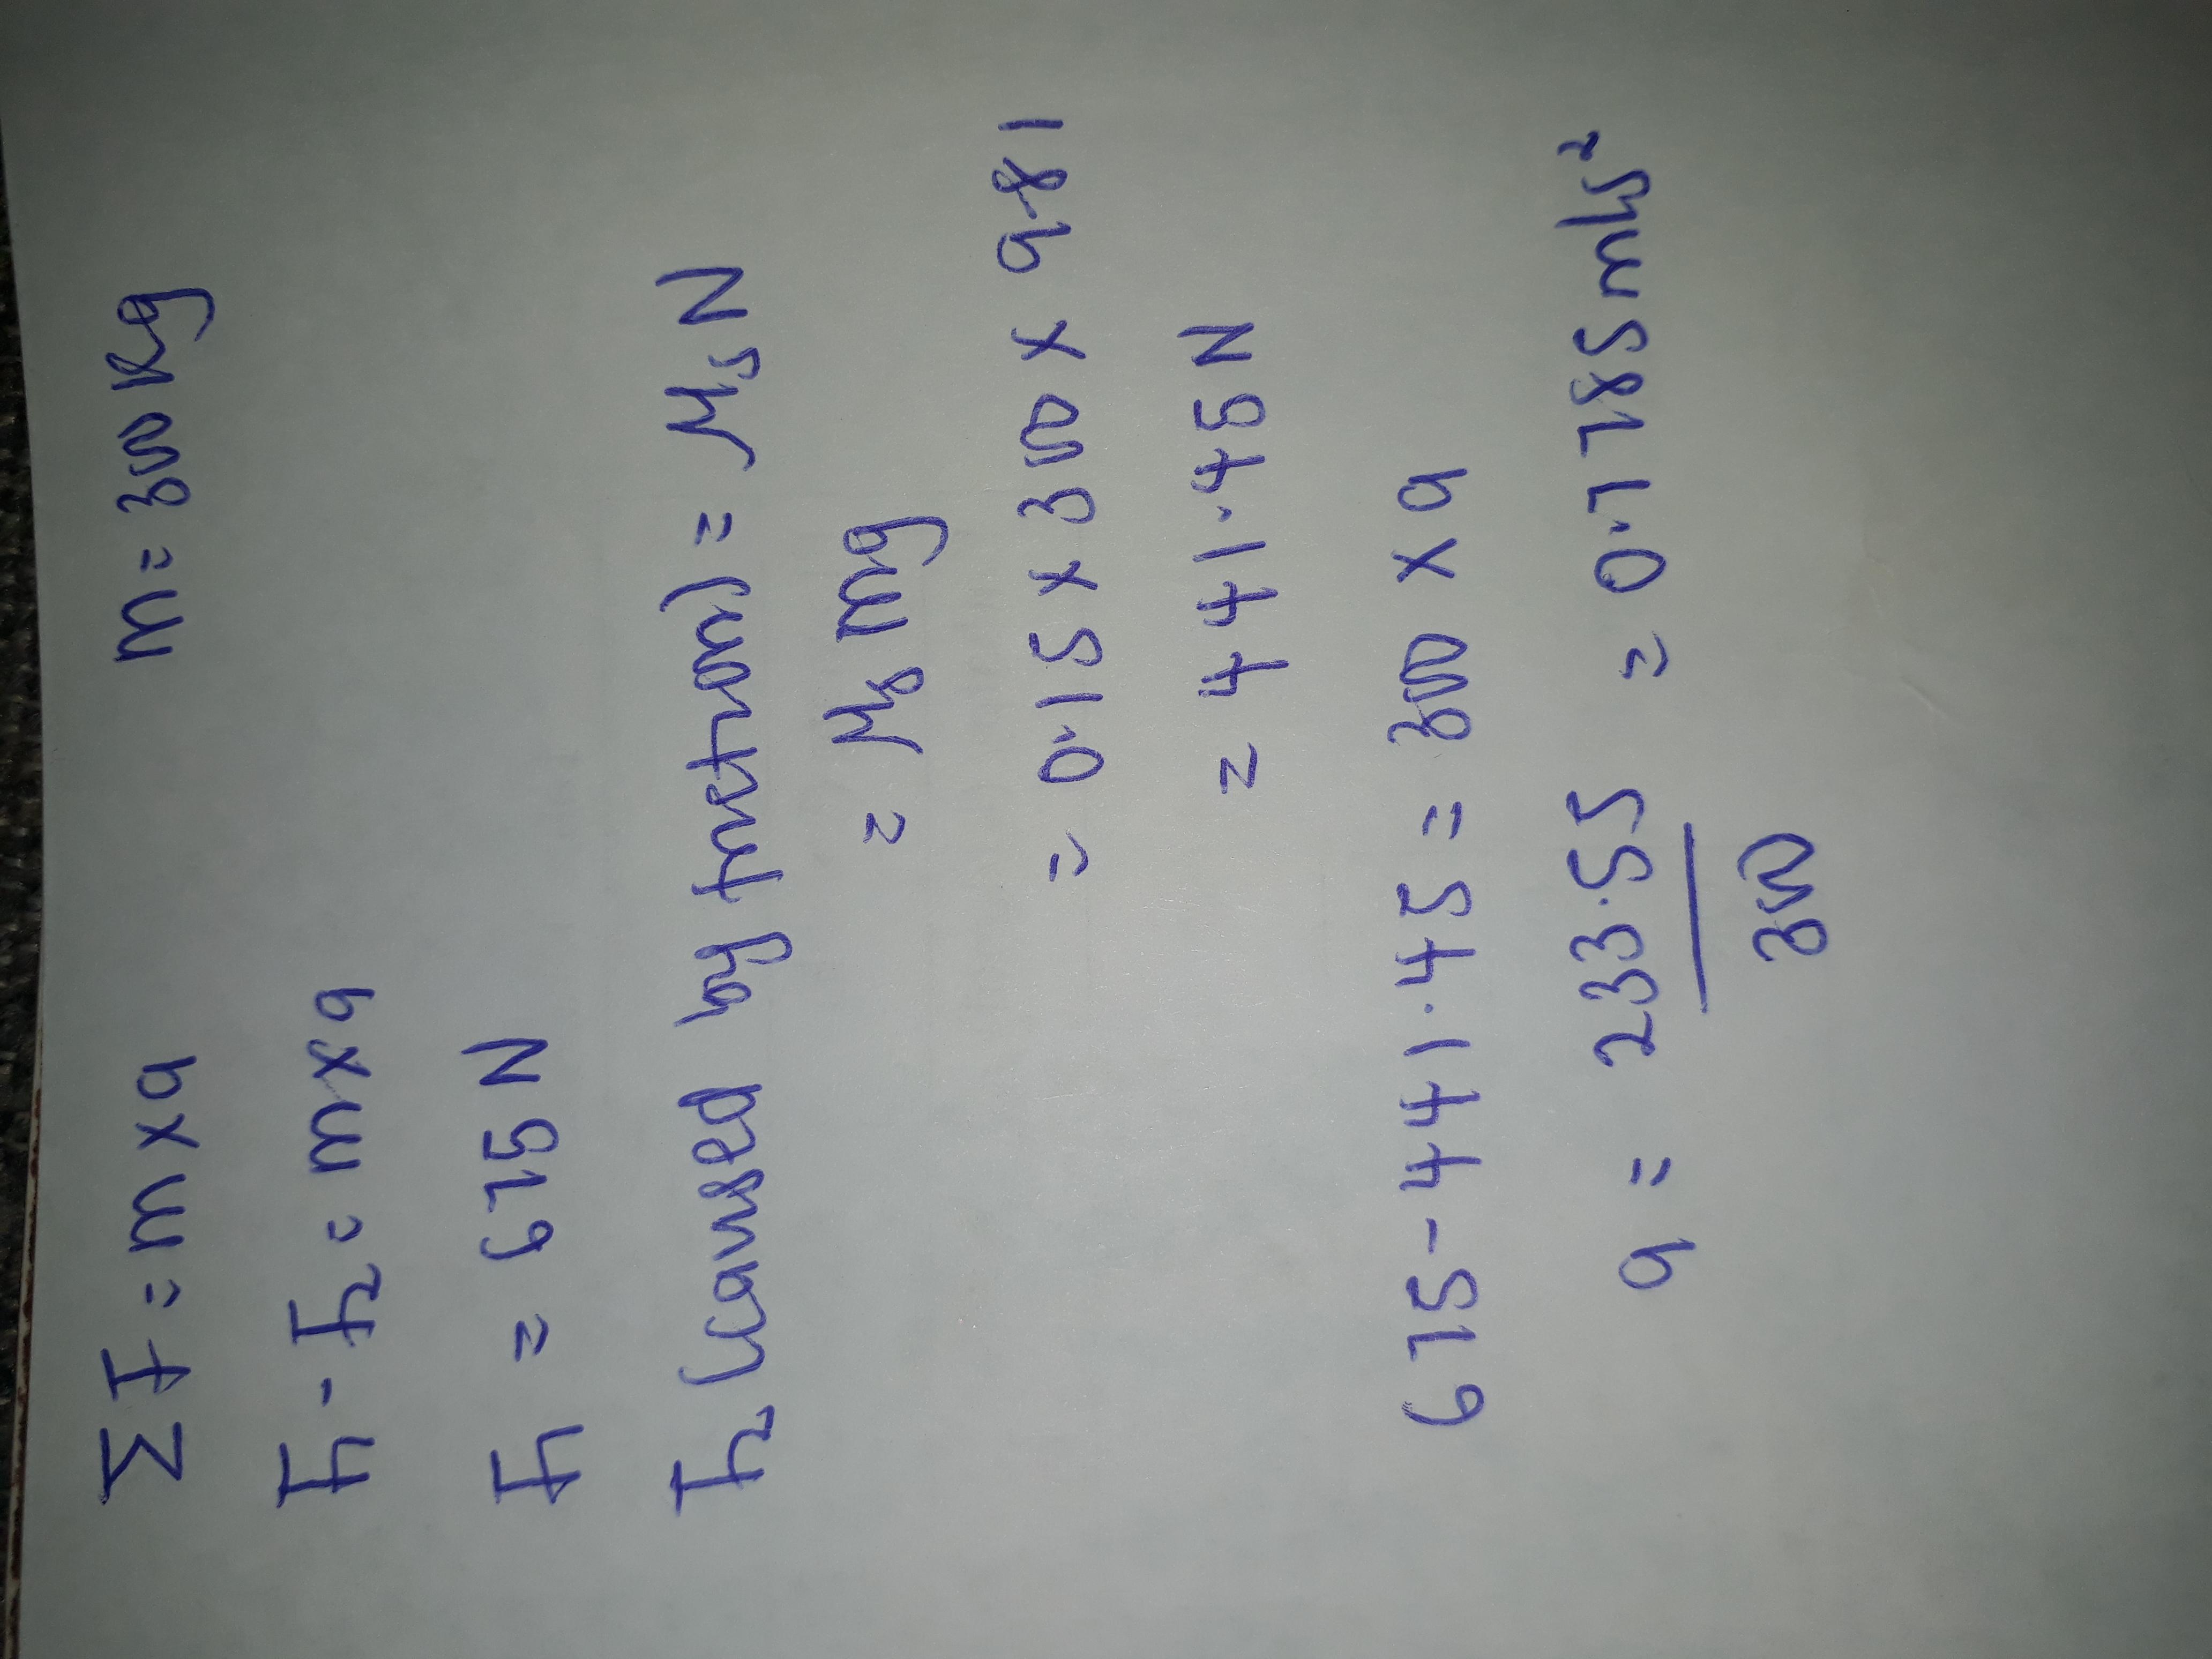 Σ F = m x a m = 300 Kg
F₁ - F₂ = m x a
F₁ = 675 N
F₂ (caused by friction) = μₛ N
= μₛ mg
= 0.15 x 300 x 9.81
= 441.45 N
675 - 441.45 = 300 x a
a = 233.55 = 0.7785 m/s²
300